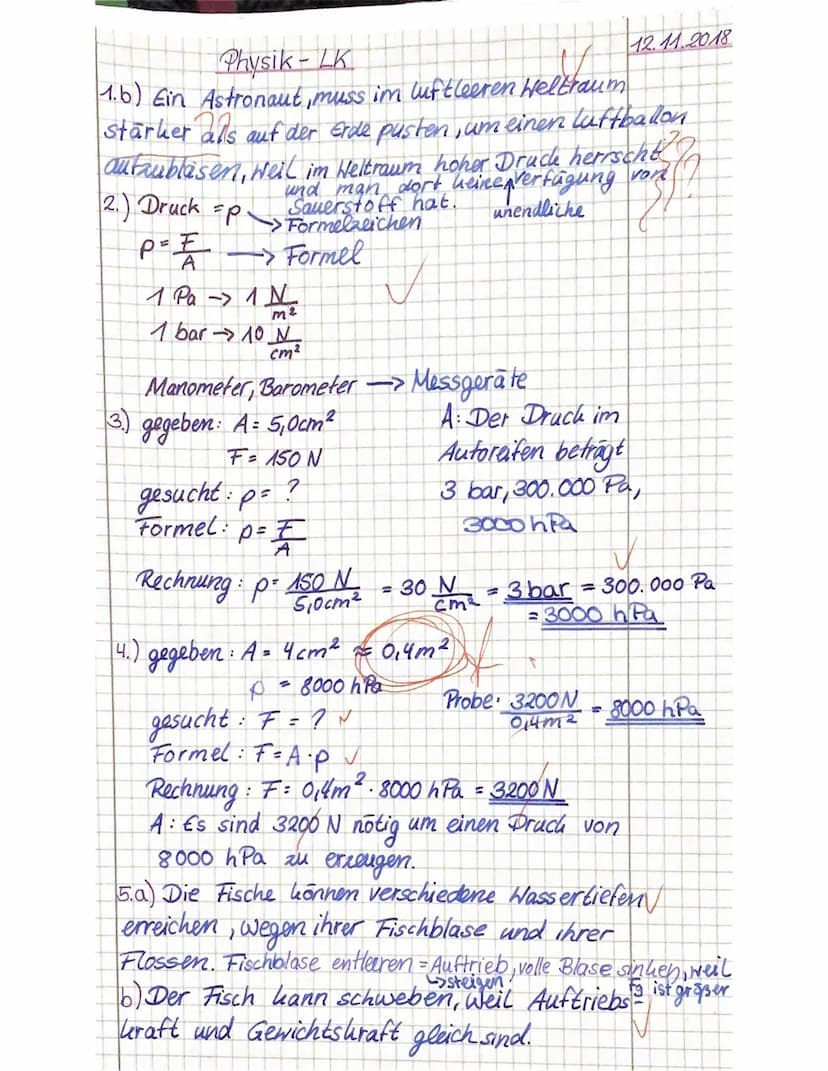 Physik - LK
12.11.2018
1.b) Ein Astronaut, muss im luftleeren Weltraum
stärker als auf der Erde pusten, um einen Luftballon
aufzublasen, weil im Weltraum hoher Druck herrscht
und man dort keine unendliche Verfügung von
Sauerstoff hat.
2.) Druck = p → Formelzeichen
p = F/A → Formel
1 Pa → 1 N/m²
1 bar → 10 N/cm²
Manometer, Barometer → Messgeräte
3.) gegeben: A = 5,0cm²
F = 150 N
gesucht: p = ?
Formel: p = F/A
A: Der Druck im
Autoreifen beträgt
3 bar, 300.000 Pa,
3000 hPa
Rechnung: p = 150 N/5,0cm² = 30 N/cm² = 3 bar = 300.000 Pa
= 3000 hPa
4.) gegeben: A = 4cm² ≈ 0,4m²
p = 8000 hPa
gesucht: F = ?
Formel: F = A·p
Probe: 3200N/0,4m² = 8000 hPa
Rechnung: F = 0,4m² · 8000 hPa = 3200N
A: Es sind 3200 N nötig um einen Druck von
8000 hPa zu erzeugen.
5.a) Die Fische können verschiedene Wassertiefen
erreichen, wegen ihrer Fischblase und ihrer
Flossen. Fischblase entleeren = Auftrieb, volle Blase sinken, weil
↳ steigen
Fg ist größer
b) Der Fisch kann schweben, weil Auftriebs-
kraft und Gewichtskraft gleich sind.